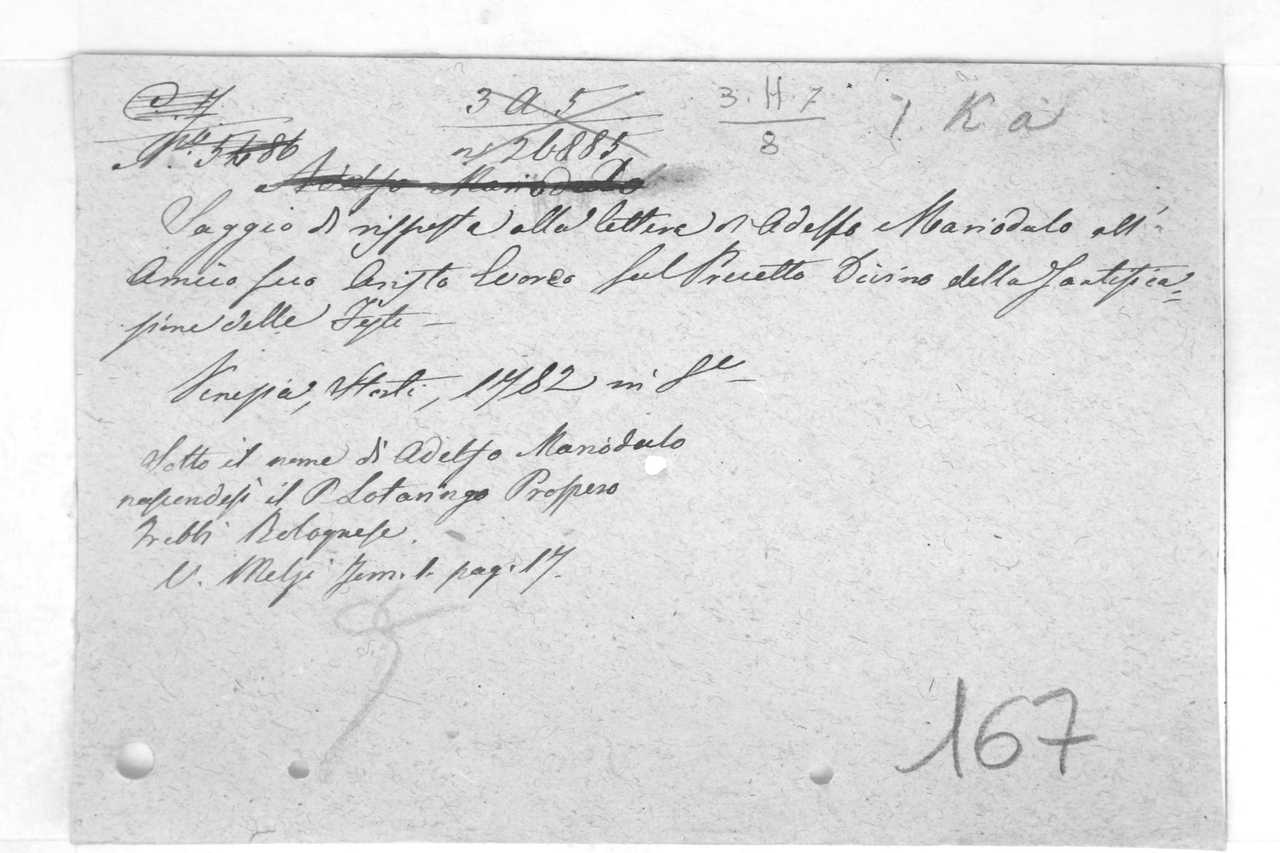 C. 7
3 A 5
3. H. 7
8
7. K a
N.° 5686
n.° 26885
Adelfo Mariodulo
Saggio di risposta alla lettera di Adelfo Mariodulo all'
Amico suo Aristo sul Precetto Divino della Santifica=
zione delle Feste —
Venezia, Storti, 1782 in 8.e —
Sotto il nome di Adelfo Mariodulo
nascondesi il P. Lotaringo Prospero
Trebbi Bolognese.
V. Melzi Tom. 1. pag. 17.
167